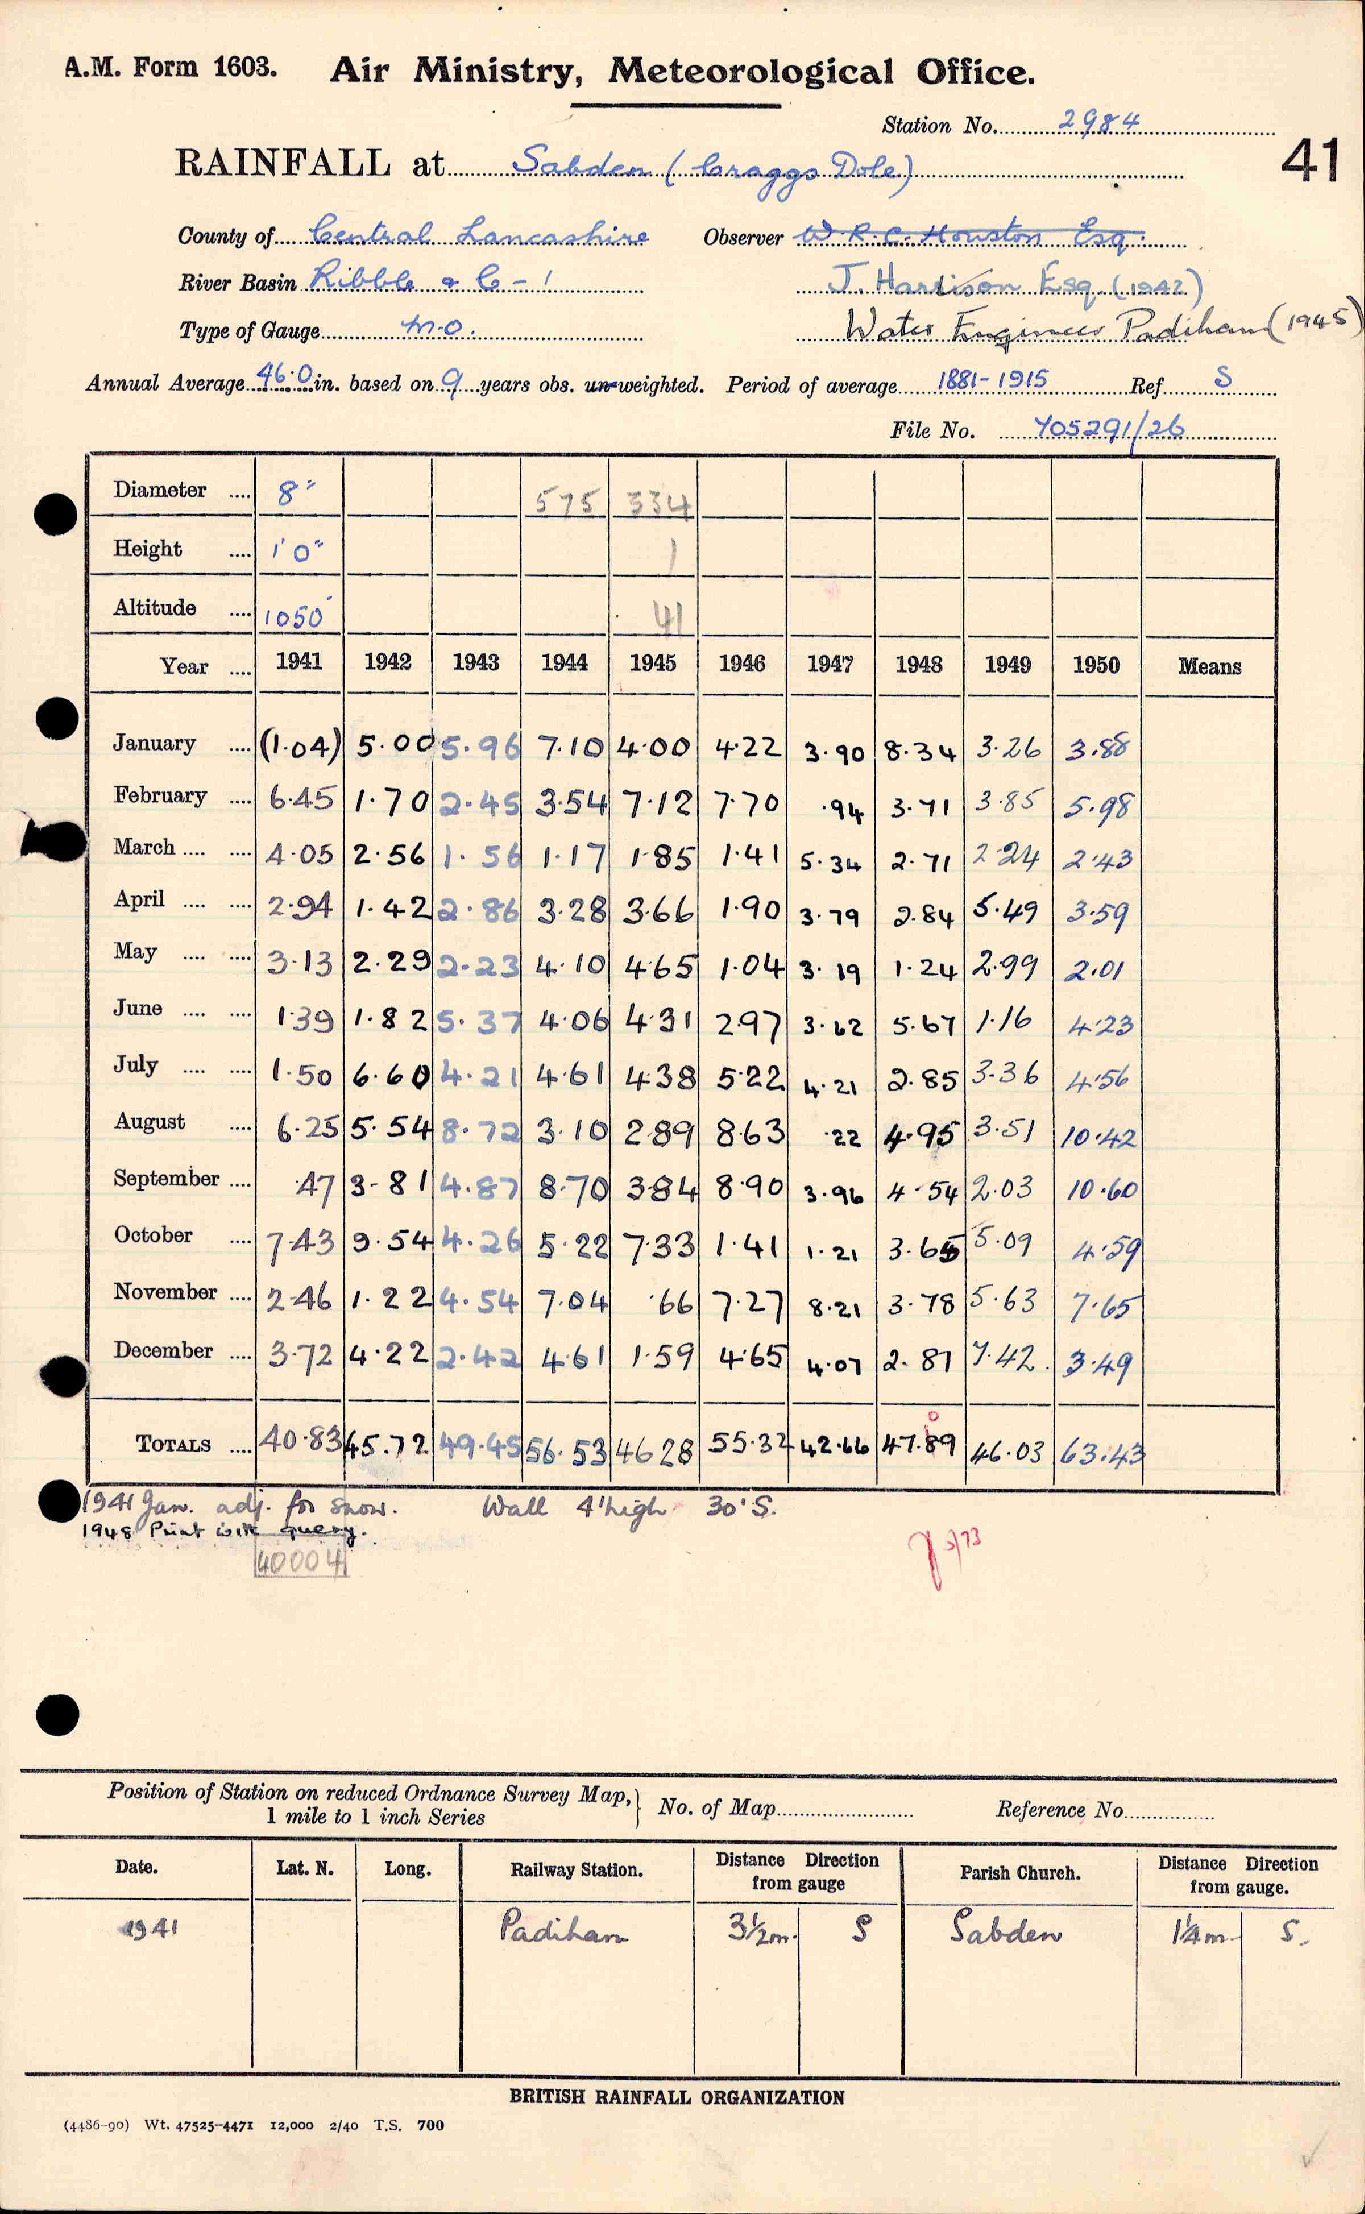 A.M. Form 1603. Air Ministry, Meteorological Office.
Station No. 2984
41
RAINFALL at Sabden (Craggs Dole)
County of Central Lancashire Observer W.R.C. Houston Esq.
River Basin Ribble & C - 1 J. Harrison Esq. (1942)
Type of Gauge M.O. Water Engineer Padiham (1945)
Annual Average 46.0 in. based on 9 years obs. un-weighted. Period of average 1881-1915 Ref. S
File No. 405291/26
Diameter .... 8" 575 334
Height .... 1'0" 1
Altitude .... 1050' 41
Year .... 1941 1942 1943 1944 1945 1946 1947 1948 1949 1950 Means
January .... (1.04) 5.00 5.96 7.10 4.00 4.22 3.90 8.34 3.26 3.88
February .... 6.45 1.70 2.45 3.54 7.12 7.70 .94 3.71 3.85 5.98
March .... .... 4.05 2.56 1.56 1.17 1.85 1.41 5.34 2.71 2.24 2.43
April .... .... 2.94 1.42 2.86 3.28 3.66 1.90 3.79 2.84 5.49 3.59
May .... .... 3.13 2.29 2.23 4.10 4.65 1.04 3.19 1.24 2.99 2.01
June .... .... 1.39 1.82 5.37 4.06 4.31 2.97 3.62 5.67 1.16 4.23
July .... .... 1.50 6.60 4.21 4.61 4.38 5.22 4.21 2.85 3.36 4.56
August .... 6.25 5.54 8.72 3.10 2.89 8.63 .22 4.95 3.51 10.42
September .... .47 3.81 4.87 8.70 3.84 8.90 3.96 4.54 2.03 10.60
October .... 7.43 9.54 4.26 5.22 7.33 1.41 1.21 3.65 5.09 4.59
November .... 2.46 1.22 4.54 7.04 .66 7.27 8.21 3.78 5.63 7.65
December .... 3.72 4.22 2.42 4.61 1.59 4.65 4.07 2.87 7.42 3.49
TOTALS .... 40.83 45.72 49.45 56.53 46.28 55.32 42.66 47.89 46.03 63.43
1941 Jan. adj. for snow. Wall 4' high 30' S.
1948 Print with query.
5/73
40004
Position of Station on reduced Ordnance Survey Map,
1 mile to 1 inch Series
No. of Map Reference No.
Date. Lat. N. Long. Railway Station. Distance Direction from gauge Parish Church. Distance Direction from gauge.
1941 Padiham 3½m. S Sabden 1¼m. S.
BRITISH RAINFALL ORGANIZATION
(4486-90) Wt. 47525-4471 12,000 2/40 T.S. 700